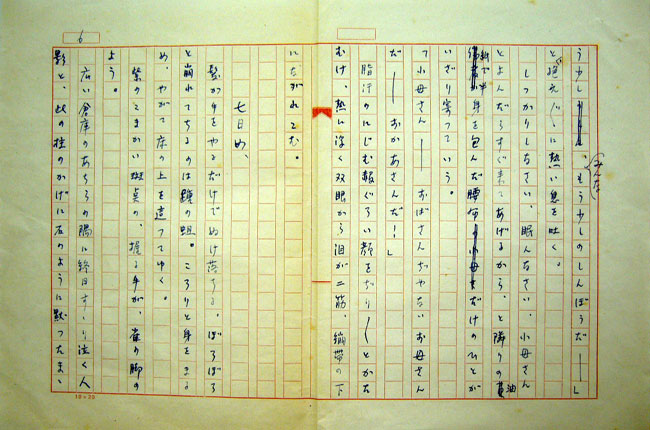 う少し もう少しのしんぼうだ――」
みんな
と絶えだえに熱い息を吐く。
しっかりしなさい、眠んなさい、小母さん
とよんだらすぐ来てあげるから、と隣りの
黄油紙で半身を包んだ だけのひとが
いざり寄っていう。
て小母さん―― おばさんぢゃない お母さん
だ―― おかあさんだ――」
脂汗のにじむ赧ぐろい顔をぢり――とかた
むけ、熱に浮く双眼から泪が二筋、繃帯の下
にながれこむ。
七日め、
髪が手をやるだけでぬけ落ちる。ぼろぼろ
と崩れてちるのは踵の蛆。ころりと身をまる
め、やがて床の上を這ってゆく。
紫のこまかい斑点の、握る手が、雀の脚の
よう。
広い倉庫のあちらの隅に終日すゝり泣く人
影と、此の柱のかげに石のように黙ったまゝ
6
10×20